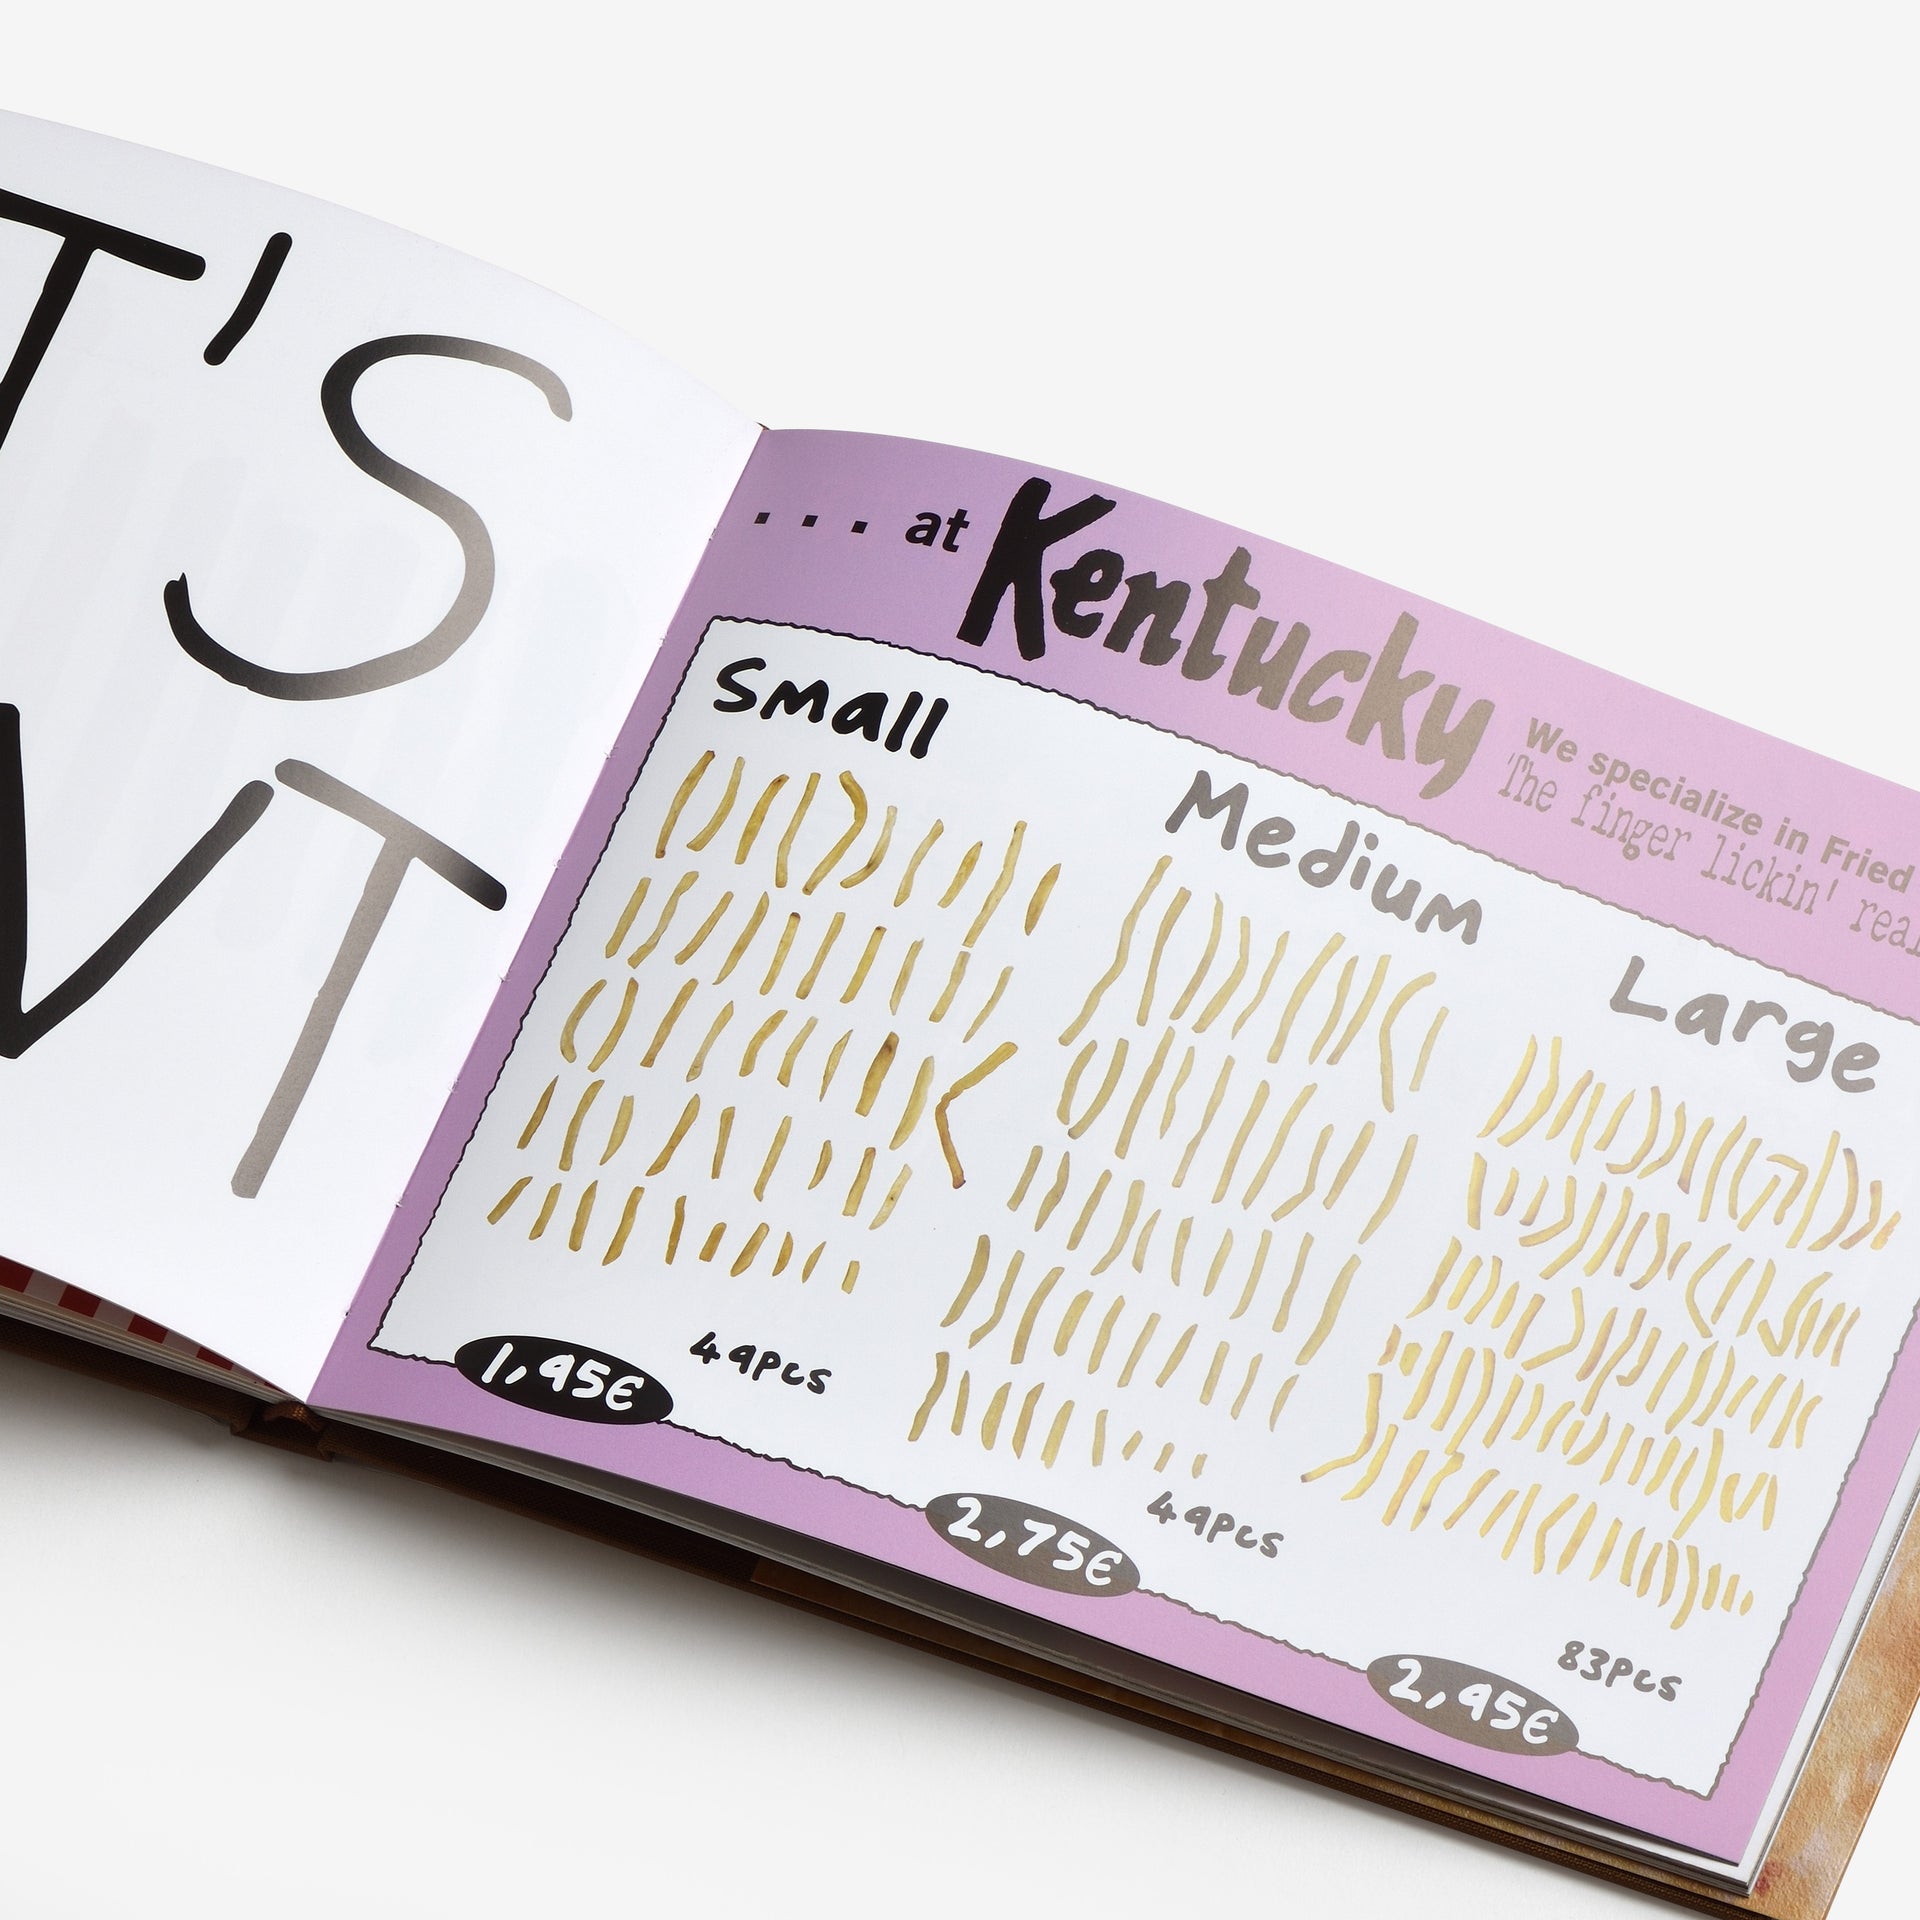 T'S
NT
... at Kentucky
We specialize in Fried
The finger lickin' real
Small
Medium
Large
49pcs
1,95€
49pcs
2,75€
83pcs
2,95€